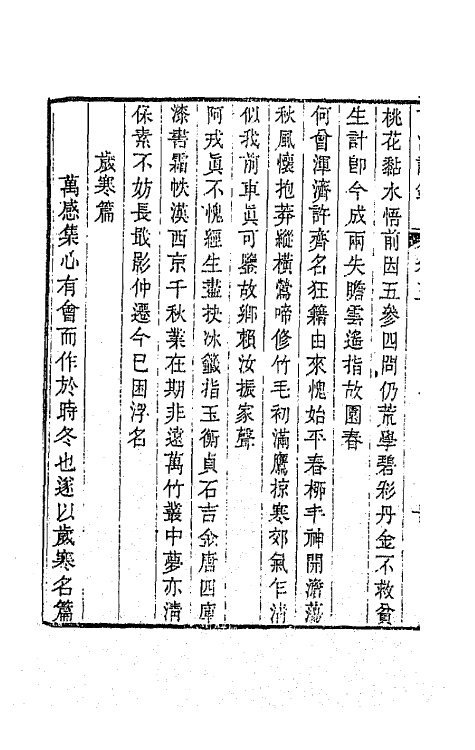 桃花黏水悟前因五參四問仍荒學碧彩丹金不救貧
生計卽今成兩失瞻雲遙指故園春
何曾渾濟許齊名狂籍由來愧始平春柳丰神開澹蕩
秋風懷抱莽縱橫鶯啼修竹毛初滿鷹掠寒郊氣乍清
似我前車眞可鑒故鄉賴汝振家聲
阿戎眞不愧經生盡抉冰籤指玉衡貞石吉金唐四庫
漆書霜帙漢西京千秋業在期非遠萬竹叢中夢亦淸
保素不妨長戢影仲遷今已困浮名
歲寒篇
萬感集心有會而作於時冬也遂以歲寒名篇